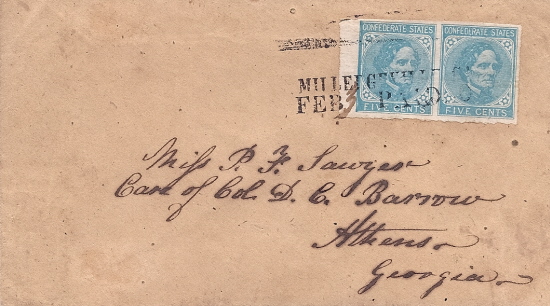 CONFEDERATE STATES CONFEDERATE STATES
FIVE CENTS FIVE CENTS
MILLEDGEVILLE
FEB PAID
Miss P. F. Sawyer
Care of Col. D. C. Barrow
Athens
Georgia